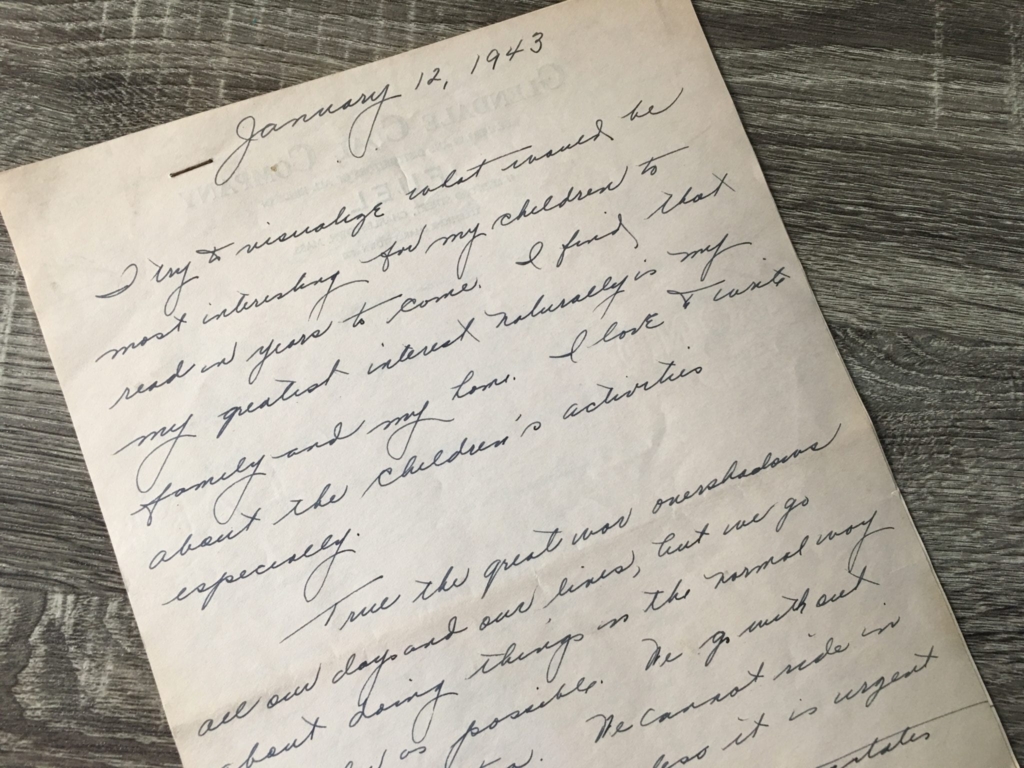 January 12, 1943
I try to visualize what would be
most interesting for my children to
read in years to come. I find that
my greatest interest naturally is my
family and my home. I love to write
about the children's activities
especially.
True the great war overshadows
all our days and our lives, but we go
about doing things in the normal way
as possible. We go without
We cannot ride in
it is urgent
GLENDALE
COMPANY